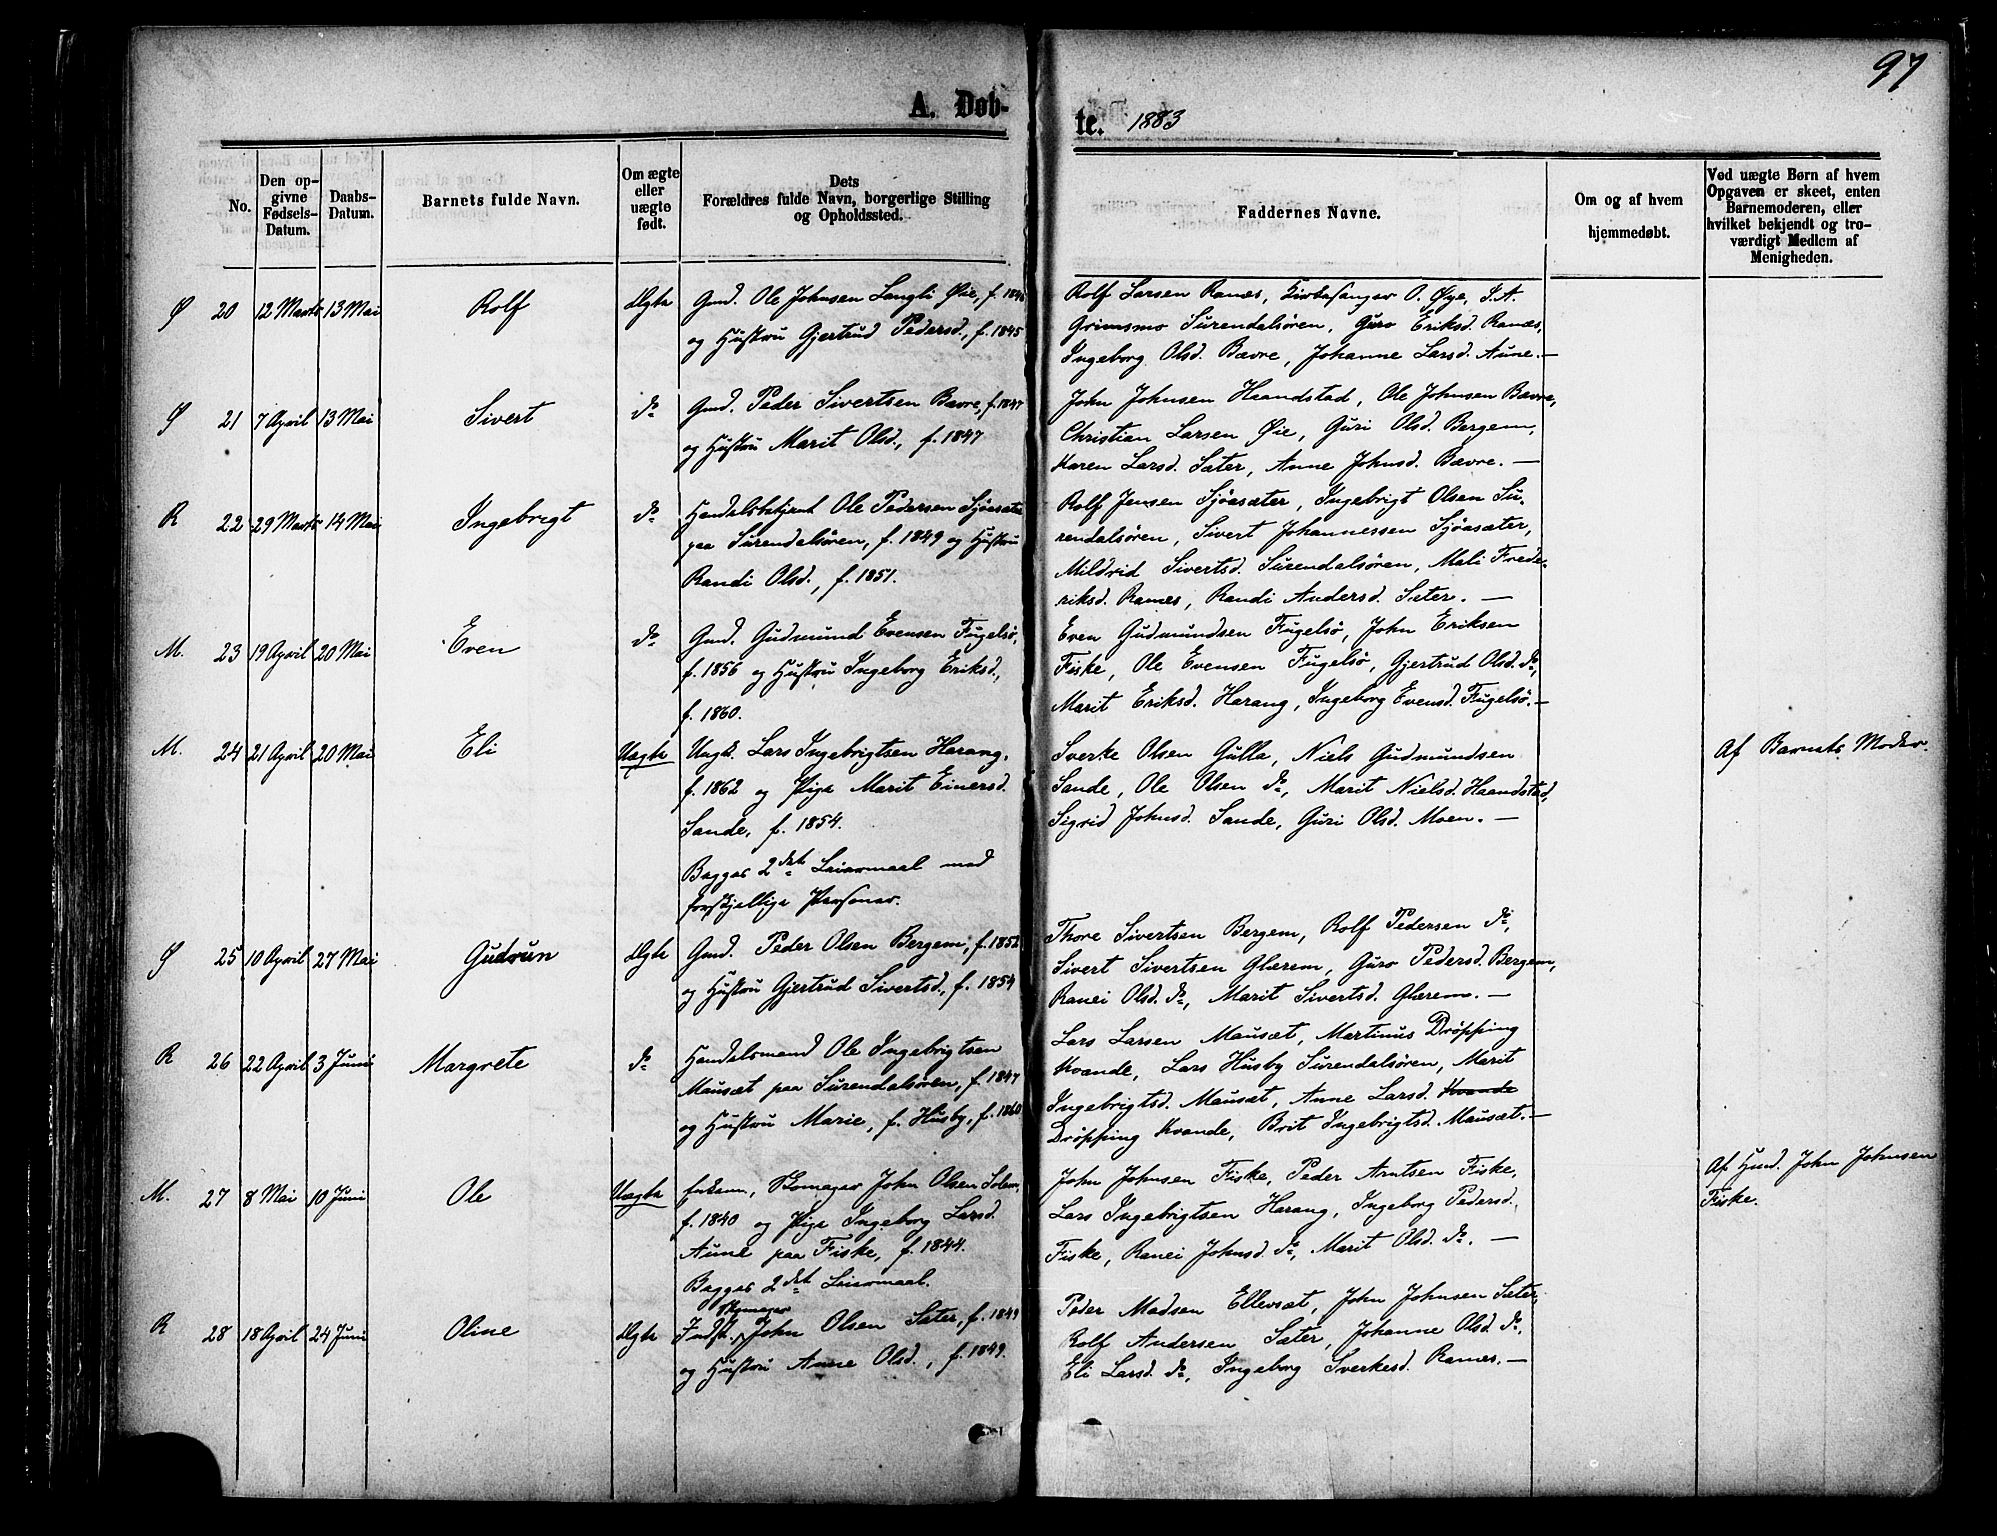 97
A. Døb-
te. 1883
No.
Den op-
givne
Fødsels-
Datum.
Daabs-
Datum.
Barnets fulde Navn.
Om ægte
eller
uægte
født.
Dets
Forældres fulde Navn, borgerlige Stilling
og Opholdssted.
Faddernes Navne.
Om og af hvem
hjemmedøbt.
Ved uægte Børn af hvem
Opgaven er skeet, enten
Barnemoderen, eller
hvilket bekjendt og tro-
værdigt Medlem af
Menigheden.
Ø 20 12 Marts 13 Mai Rolf Ægte
Gmd. Ole Johnsen Langli Øie, f.
og Hustru Gjertrud Pedersd., f. 1845
Rolf Larsen Ranæs, Kirkesanger O. Øye, S. A.
Grimsmo Surendalsøren, Guro Eriksd. Ranæs,
Ingeborg Olsd. Bævre, Johanne Larsd. Aune. —
Ø 21 7 April 13 Mai Sivert do
Gmd. Peder Sivertsen Bævre, f. 1847
og Hustru Marit Olsd., f. 1847
John Johnsen Haandstad, Ole Johnsen Bævre,
Christian Larsen Øie, Guri Olsd. Bergem,
Karen Larsd. Sæter, Anne Johnsd. Bævre. —
R 22 29 Marts 14 Mai Ingebrigt do
Handelsbetjent Ole Pedersen Sjøasæter
paa Surendalsøren, f. 1849 og Hustru
Randi Olsd., f. 1851.
Rolf Jensen Sjøasæter, Ingebrigt Olsen Su-
rendalsøren, Sivert Johannessen Sjøasæter,
Mildrid Sivertsd. Surendalsøren, Mali Frede-
riksd. Ranæs, Randi Andersd. Sæter. —
M. 23 19 April 20 Mai Even do
Gmd. Gudmund Evensen Fugelsø,
f. 1856 og Hustru Ingeborg Eriksd.,
f. 1860.
Even Gudmundsen Fugelsø, John Eriksen
Fiske, Ole Evensen Fugelsø, Gjertrud Olsd. do,
Marit Eriksd. Harang, Ingeborg Evensd. Fugelsø. —
M. 24 21 April 20 Mai Eli Uægte
Ungk. Lars Ingebrigtsen Harang,
f. 1862 og Pige Marit Einersd.
Sande, f. 1854.
Begges 2det Leiermaal med
forskjellige Personer.
Sverke Olsen Gulla, Niels Gudmundsen
Sande, Ole Olsen do, Marit Nielsd. Haandstad,
Sigrid Johnsd. Sande, Guri Olsd. Moen. —
Af Barnets Moder.
Ø 25 10 April 27 Mai Gudrun Ægte
Gmd. Peder Olsen Bergem, f. 1852
og Hustru Gjertrud Sivertsd., f. 1854
Thore Sivertsen Bergem, Rolf Pedersen do,
Sivert Sivertsen Glærem, Guro Pedersd. Bergem,
Ranei Olsd. do, Marit Sivertsd. Glærem. —
R 26 22 April 3 Juni Margrete do
Handelsmand Ole Ingebrigtsen
Mausæt paa Surendalsøren, f. 1847
og Hustru Marie, f. Husby, f. 1860
Lars Larsen Mausæt, Martinus Drøpping
Kvande, Lars Husby Surendalsøren, Marit
Ingebrigtsd. Mausæt, Anne Larsd. Kvande
Drøpping Kvande, Brit Ingebrigtsd. Mausæt. —
M. 27 8 Mai 10 Juni Ole Uægte
Enkem., Skomager John Olsen Solem,
f. 1840 og Pige Ingeborg Larsd.
Aune paa Fiske, f. 1844.
Begges 2det Leiermaal.
John Johnsen Fiske, Peder Arntsen Fiske,
Lars Ingebrigtsen Harang, Ingeborg Pedersd.
Fiske, Ranei Johnsd. do, Marit Olsd. do. —
Af Hmd. John Johnsen
Fiske.
R 28 18 April 24 Juni Oline Ægte
Skomager
Indst. John Olsen Sæter, f. 1849
og Hustru Anne Olsd., f. 1849.
Peder Madsen Ellevsæt, John Johnsen Sæter,
Rolf Andersen Sæter, Johanne Olsd. do,
Eli Larsd. do, Ingeborg Sverkesd. Ranæs. —